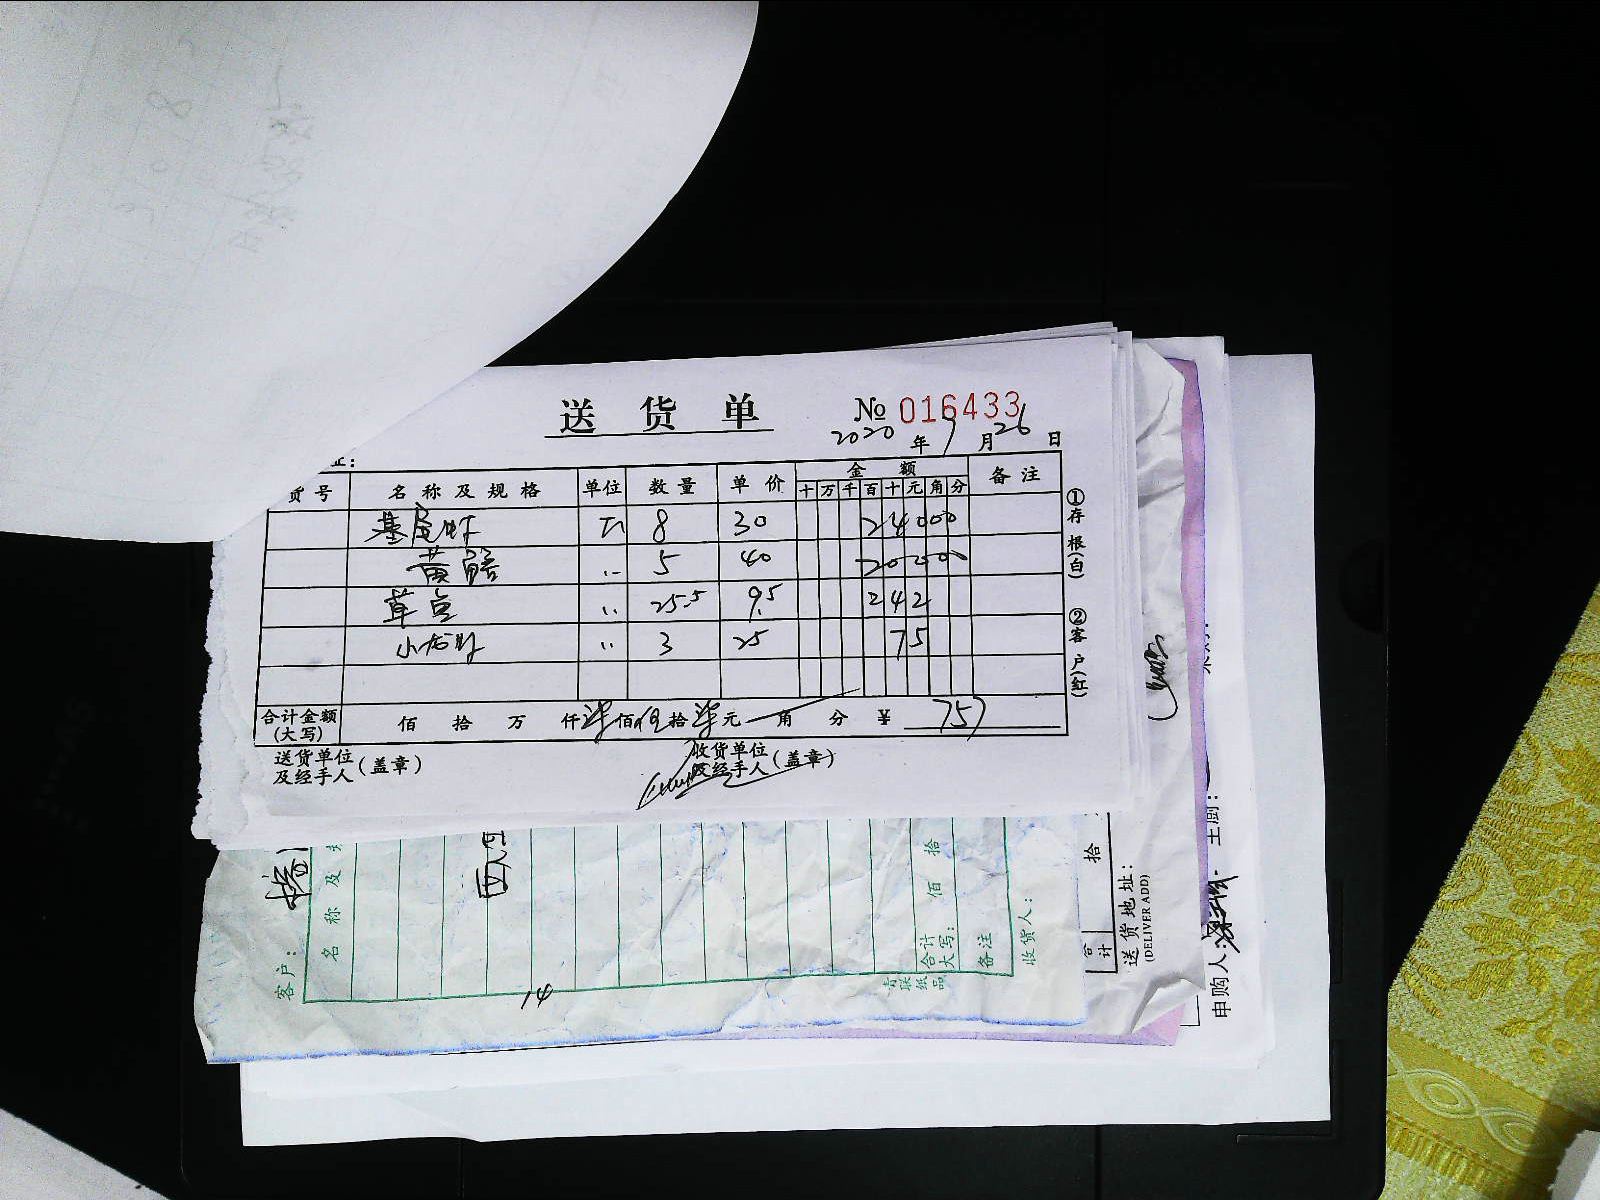 送货单 № 016433
2020年9月26日
货号 名称及规格 单位 数量 单价 金额 备注
十 万 千 百 十 元 角 分
基尾虾 斤 8 30 24000
黄鳝 〃 5 40 20000
草鱼 〃 25.5 9.5 242
小龙虾 〃 3 25 75
合计金额(大写) 佰 拾 万 仟 柒佰伍拾柒元 角 分 ¥ 757
送货单位及经手人(盖章) 收货单位及经手人(盖章)
①存根(白) ②客户(红)
客户:
名称及
14
合计大写: 佰 拾
备注
收货人:
青联纸品
合计 拾
送货地址:
(DELIVER ADD)
申购人: 主厨: